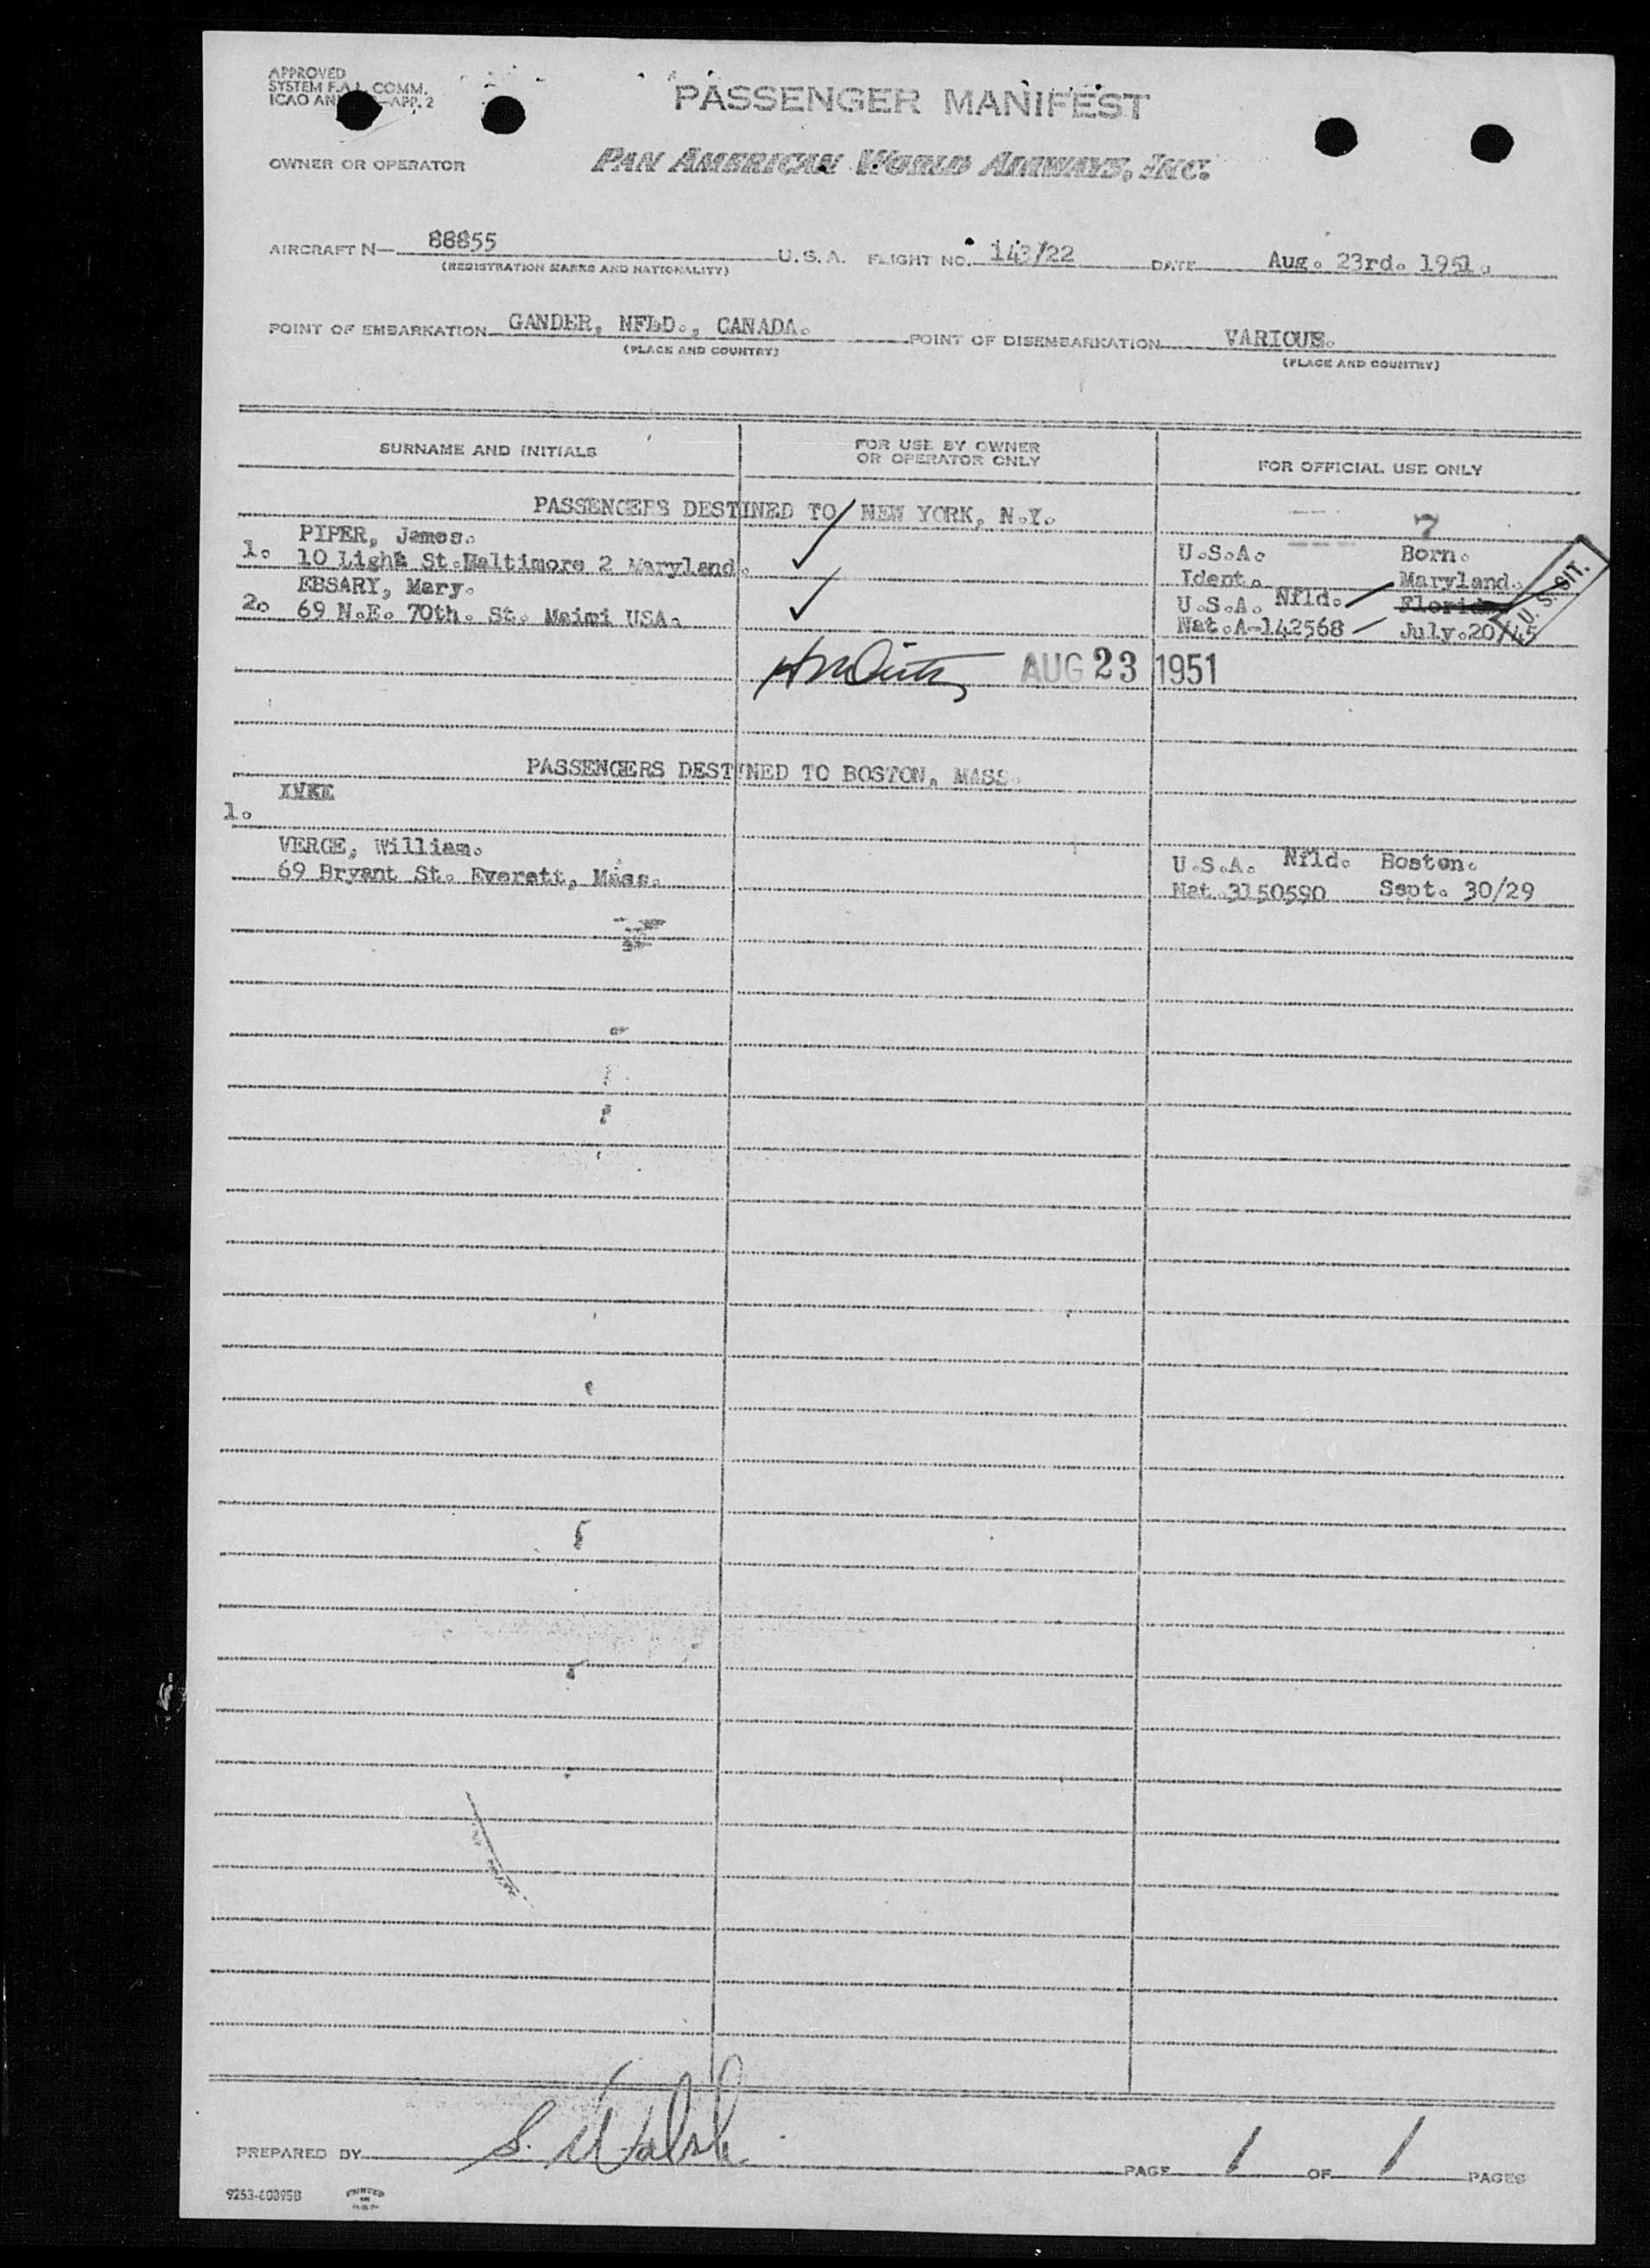 APPROVED
SYSTEM F.A.L. COMM.
ICAO AN —APP. 2
PASSENGER MANIFEST
OWNER OR OPERATOR PAN AMERICAN WORLD AIRWAYS, INC.
AIRCRAFT N— 88855 U. S. A. FLIGHT NO. 143/22 DATE Aug. 23rd. 1951.
(REGISTRATION MARKS AND NATIONALITY)
POINT OF EMBARKATION GANDER, NFLD., CANADA. POINT OF DISEMBARKATION VARIOUS.
(PLACE AND COUNTRY) (PLACE AND COUNTRY)
SURNAME AND INITIALS FOR USE BY OWNER OR OPERATOR ONLY FOR OFFICIAL USE ONLY
PASSENGERS DESTINED TO NEW YORK, N.Y.
7
PIPER, James. U.S.A. Born.
1. 10 Light St. Baltimore 2 Maryland. Ident. Maryland.
EBSARY, Mary. U.S.A. Nfld. Florida
2. 69 N.E. 70th. St. Maimi USA. Nat.A-142568 July.20/45
U. S. CIT.
AUG 23 1951
PASSENGERS DESTINED TO BOSTON, MASS.
1.
VERGE, William. U.S.A. Nfld. Boston.
69 Bryant St. Everett, Mass. Nat.3150590 Sept. 30/29
PREPARED BY S. Walsh PAGE 1 OF 1 PAGES
9253-60095B PRINTED IN U.S.A.